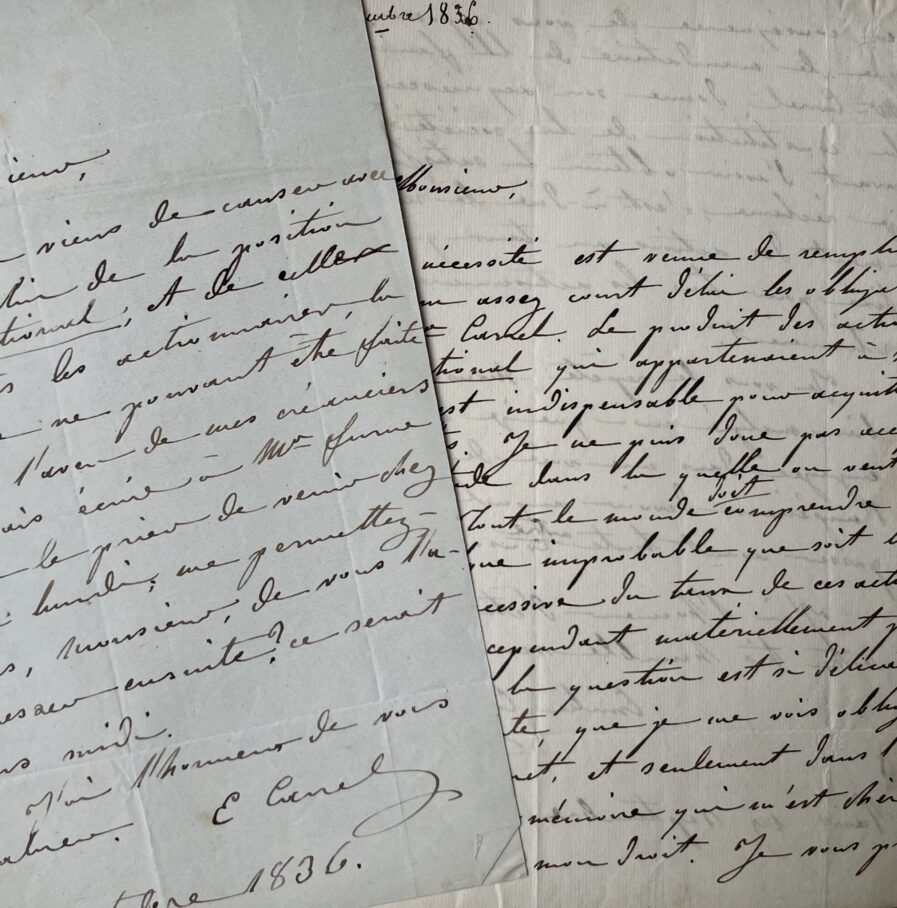 ieur,
viens de causer avec
de la position
tional, et de celle
les actionnaires, la
ne pouvant être faite
l'aveu de mes créanciers
écrire à Mr Furne
le prier de venir chez
lundi; me permettez-
monsieur, de vous l'a-
ensuite? ce serait
midi.
J'ai l'honneur de vous
saluer.
E Carrel
tobre 1836.
embre 1836.
Monsieur,
nécessité est venue de rempli
assez court délai les obliga
Carrel. Le produit des acti
tional qui appartenaient à
est indispensable pour acquitt
Je ne puis donc pas acc
dans la quelle on veut
Tout le monde doit comprendre
que improbable que soit
cessive du tiers de ces acti
cependant matériellement p
la question est si délica
te, que je me vois oblig
et, et seulement dans l'
mémoire qui m'est chèr
mon droit. Je vous p